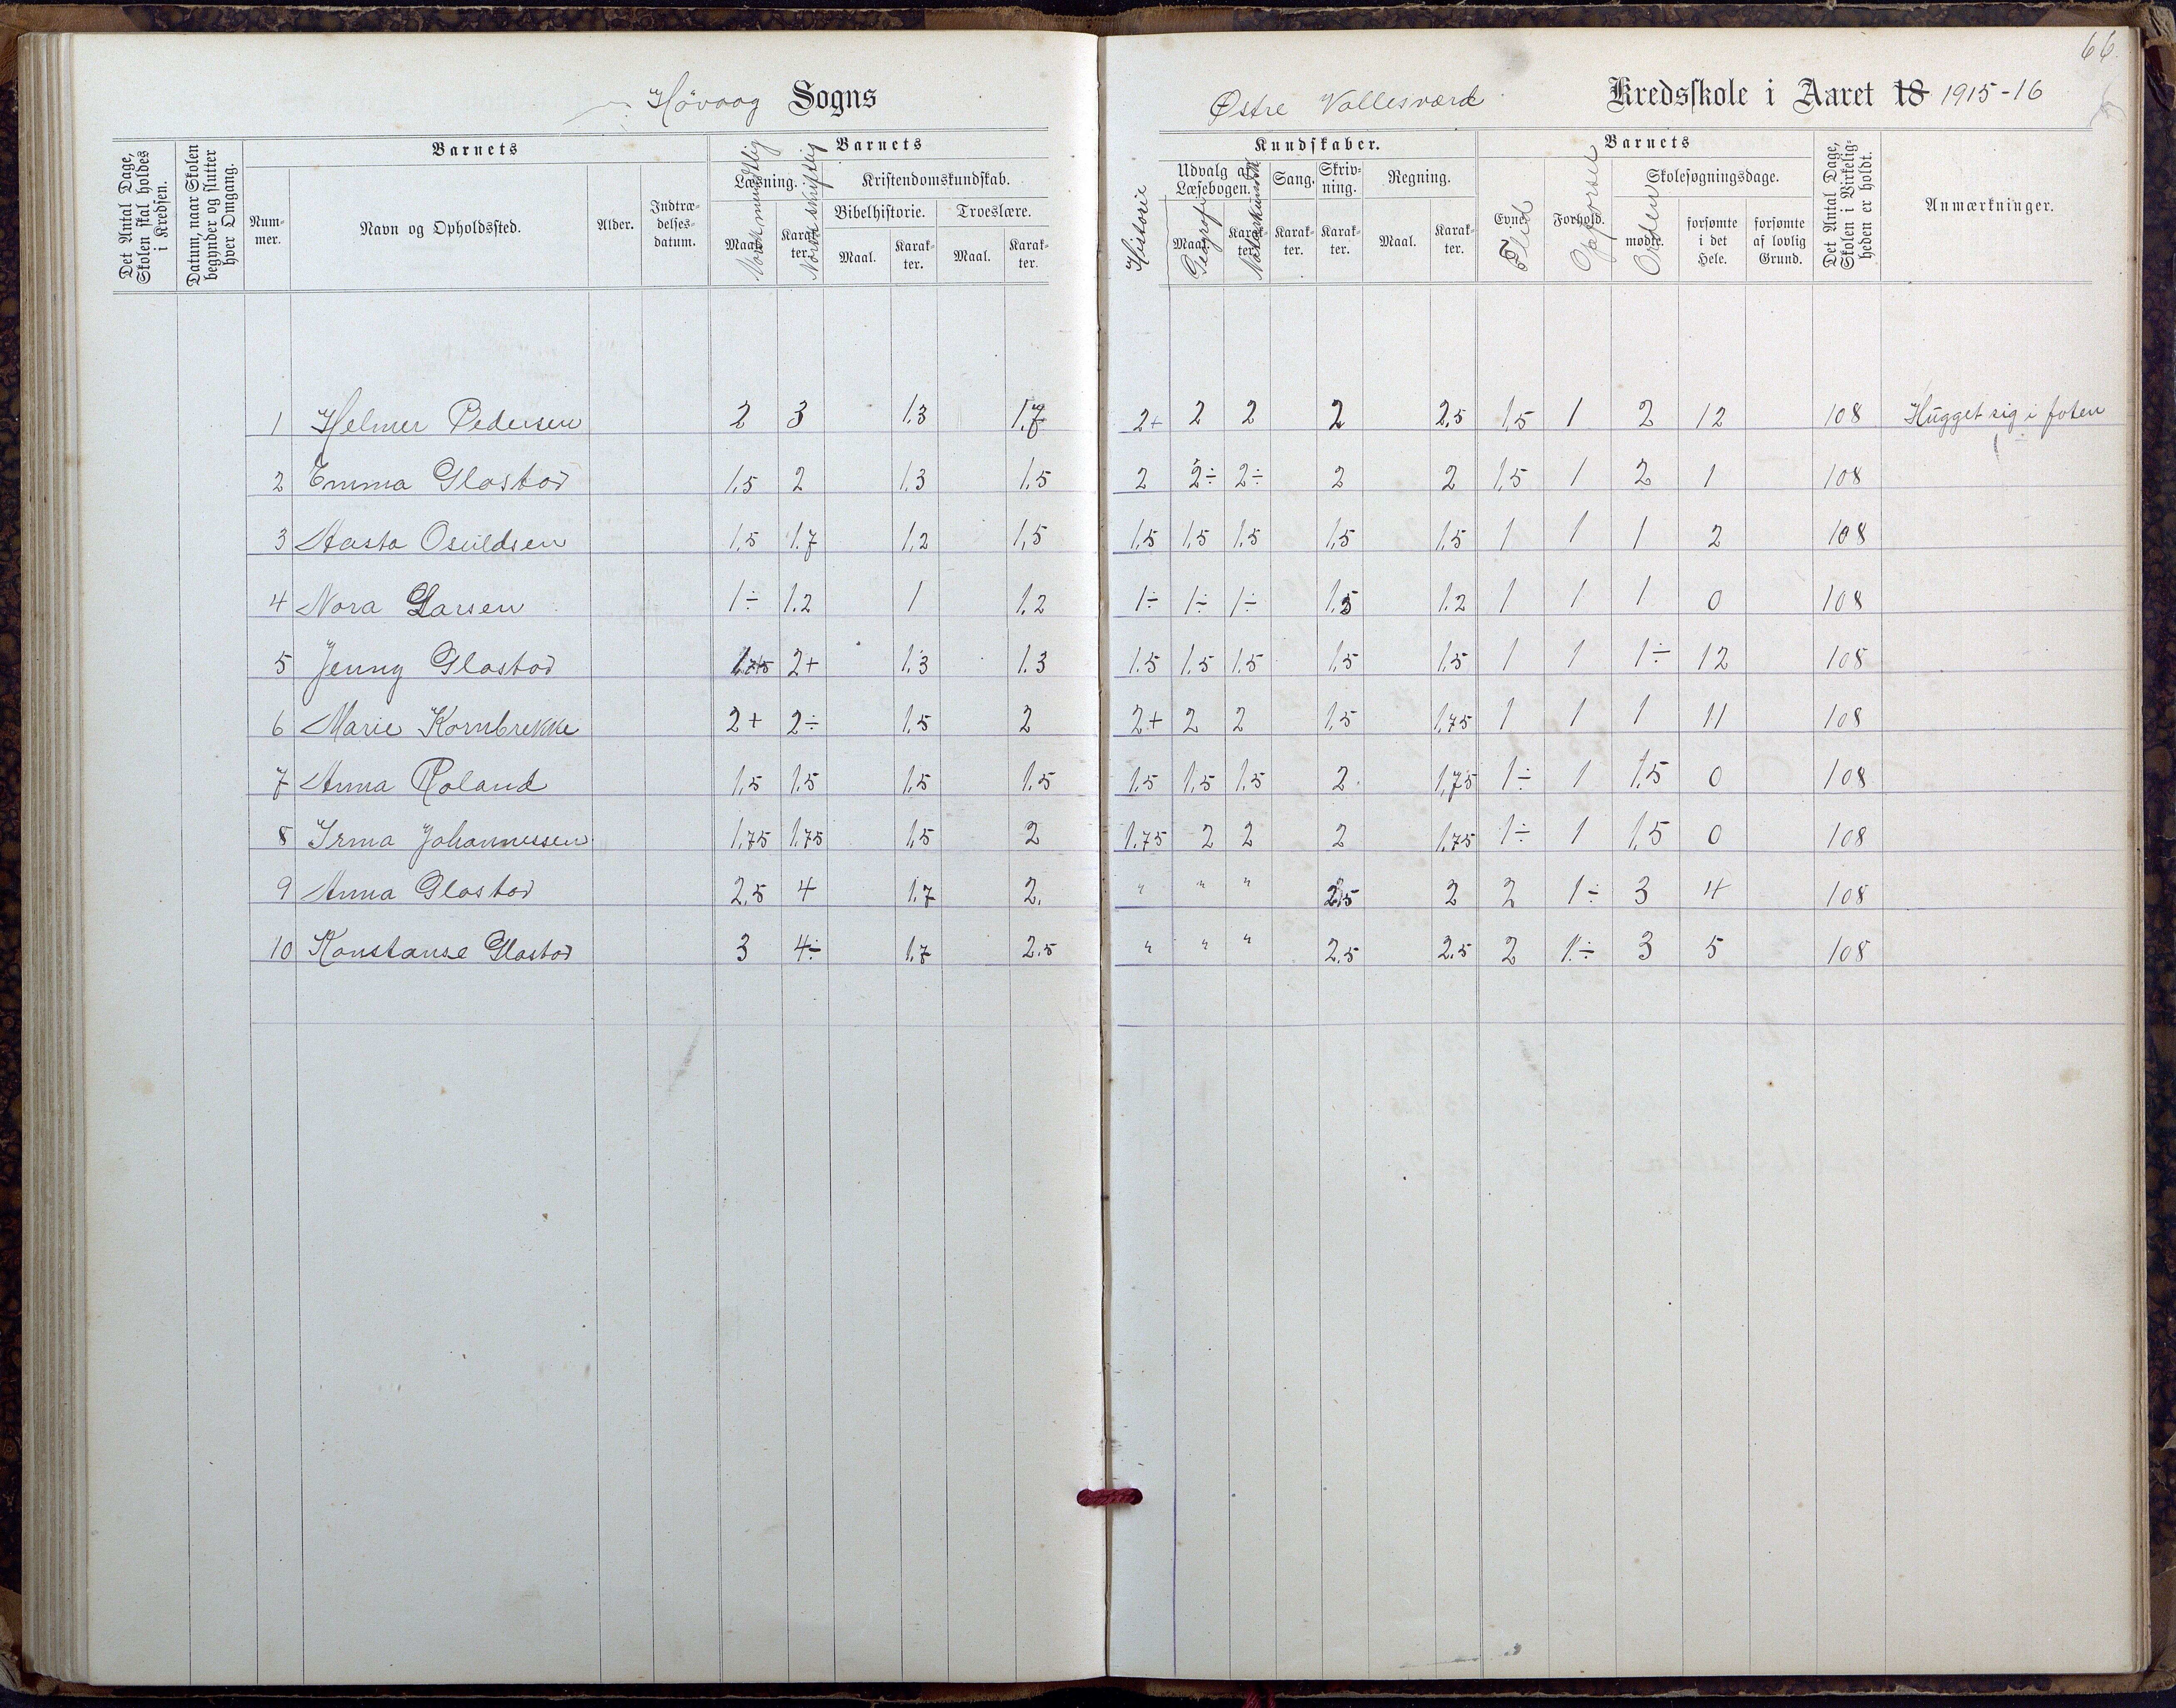 66.
Høvaag Sogns
Østre Vallesværd Kredsskole i Aaret 18 1915-16
Det Antal Dage, Skolen skal holdes i Kredsen.
Datum, naar Skolen begynder og slutter hver Omgang.
Barnets
Nummer.
Navn og Opholdssted.
Alder.
Indtrædelsesdatum.
Barnets
Læsning.
Maal.
Karakter.
Norsk mundtlig
Norsk skriftlig
Kristendomskundskab.
Bibelhistorie.
Troeslære.
Maal.
Karakter.
Maal.
Karakter.
Historie
Kundskaber.
Udvalg af Læsebogen.
Maal.
Karakter.
Geografi
Naturkundsk
Sang.
Karakter.
Skrivning.
Karakter.
Regning.
Maal.
Karakter.
Barnets
Evner.
Flid
Forhold.
Opførsel
Skolesøgningsdage.
mødte.
Orden
forsømte i det Hele.
forsømte af lovlig Grund.
Det Antal Dage, Skolen i Virkeligheden er holdt.
Anmærkninger.
1 Helmer Pedersen 2 3 1.3 1.7 2+ 2 2 2 2.5 1.5 1 2 12 108 Hugget sig i foten
2 Emma Glastad 1.5 2 1.3 1.5 2 2÷ 2÷ 2 2 1.5 1 2 1 108
3 Aasta Osuldsen 1.5 1.7 1.2 1.5 1.5 1.5 1.5 1.5 1.5 1 1 1 2 108
4 Nora Larsen 1÷ 1.2 1 1.2 1÷ 1÷ 1÷ 1.5 1.2 1 1 1 0 108
5 Jenny Glastad 1.75 2+ 1.3 1.3 1.5 1.5 1.5 1.5 1.5 1 1 1÷ 12 108
6 Marie Kornbrekke 2+ 2÷ 1.5 2 2+ 2 2 1.5 1.75 1 1 1 11 108
7 Anna Roland 1.5 1.5 1.5 1.5 1.5 1.5 1.5 2 1.75 1÷ 1 1.5 0 108
8 Irma Johannessen 1.75 1.75 1.5 2 1.75 2 2 2 1.75 1÷ 1 1.5 0 108
9 Anna Glastad 2.5 4 1.7 2. " " " 2.5 2 2 1÷ 3 4 108
10 Konstanse Glastad 3 4÷ 1.7 2.5 " " " 2.5 2.5 2 1÷ 3 5 108